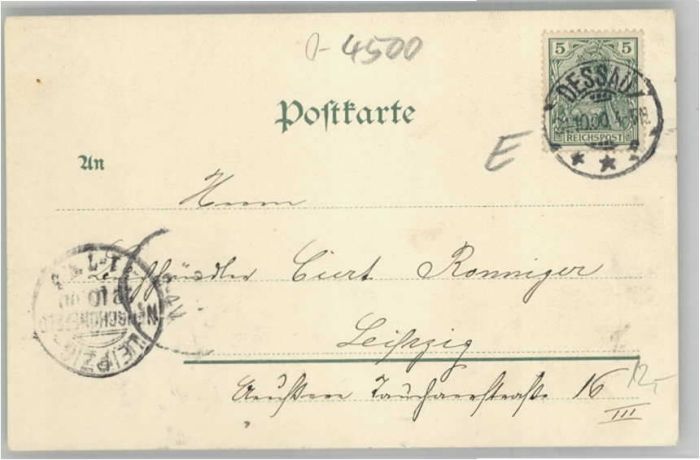 0-4500
5 5
DESSAU
REICHSPOST
Postkarte
E
An
Herrn
Curt Ronniger
LEIPZIG
Leipzig
Äussere Tauchaerstraße 16 12,-
III